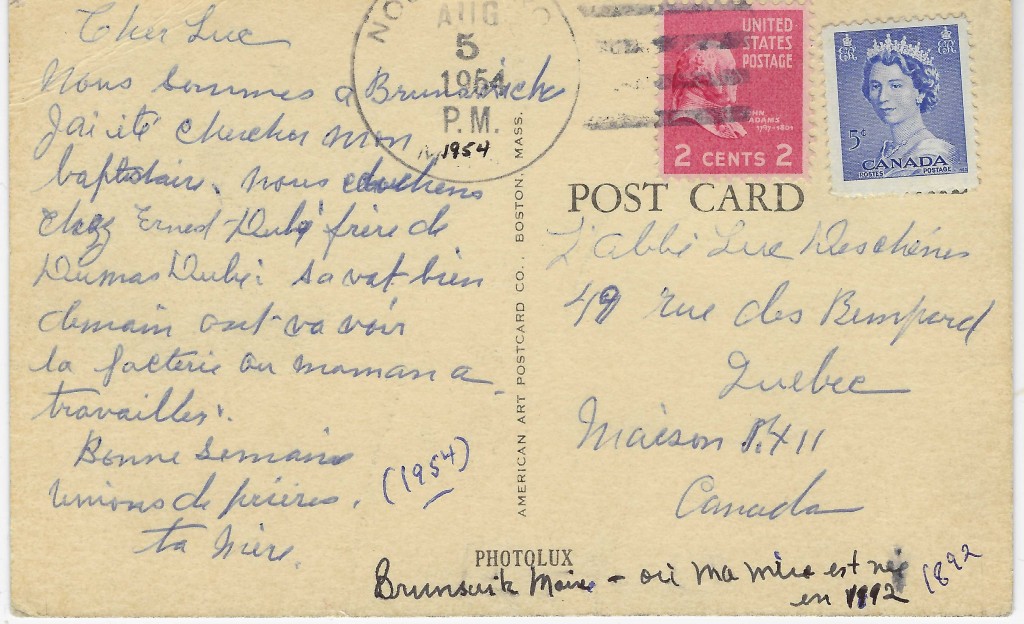 Cher Luc
Nous sommes a Brunswick
J'ai été chercher mon
baptistaire. nous couchons
chez Ernest Dubé frère de
Dumas Dubé. sa vat bien
demain ont va voir
la facterie ou maman a
travailler.
Bonne Semaine
unions de prières.
ta Mère.
(1954)
AUG
5
1954
P.M.
1954
UNITED
STATES
POSTAGE
JOHN
ADAMS
1797-1801
2 CENTS 2
EIIR EIIR
5¢
CANADA
POSTES POSTAGE
POST CARD
L'abbé Luc Deschênes
49 rue des Rempard
Quebec
Maison
Canada
AMERICAN ART POSTCARD CO., BOSTON, MASS.
PHOTOLUX
Brunswick Maine - où ma mère est née
en 1892
1892